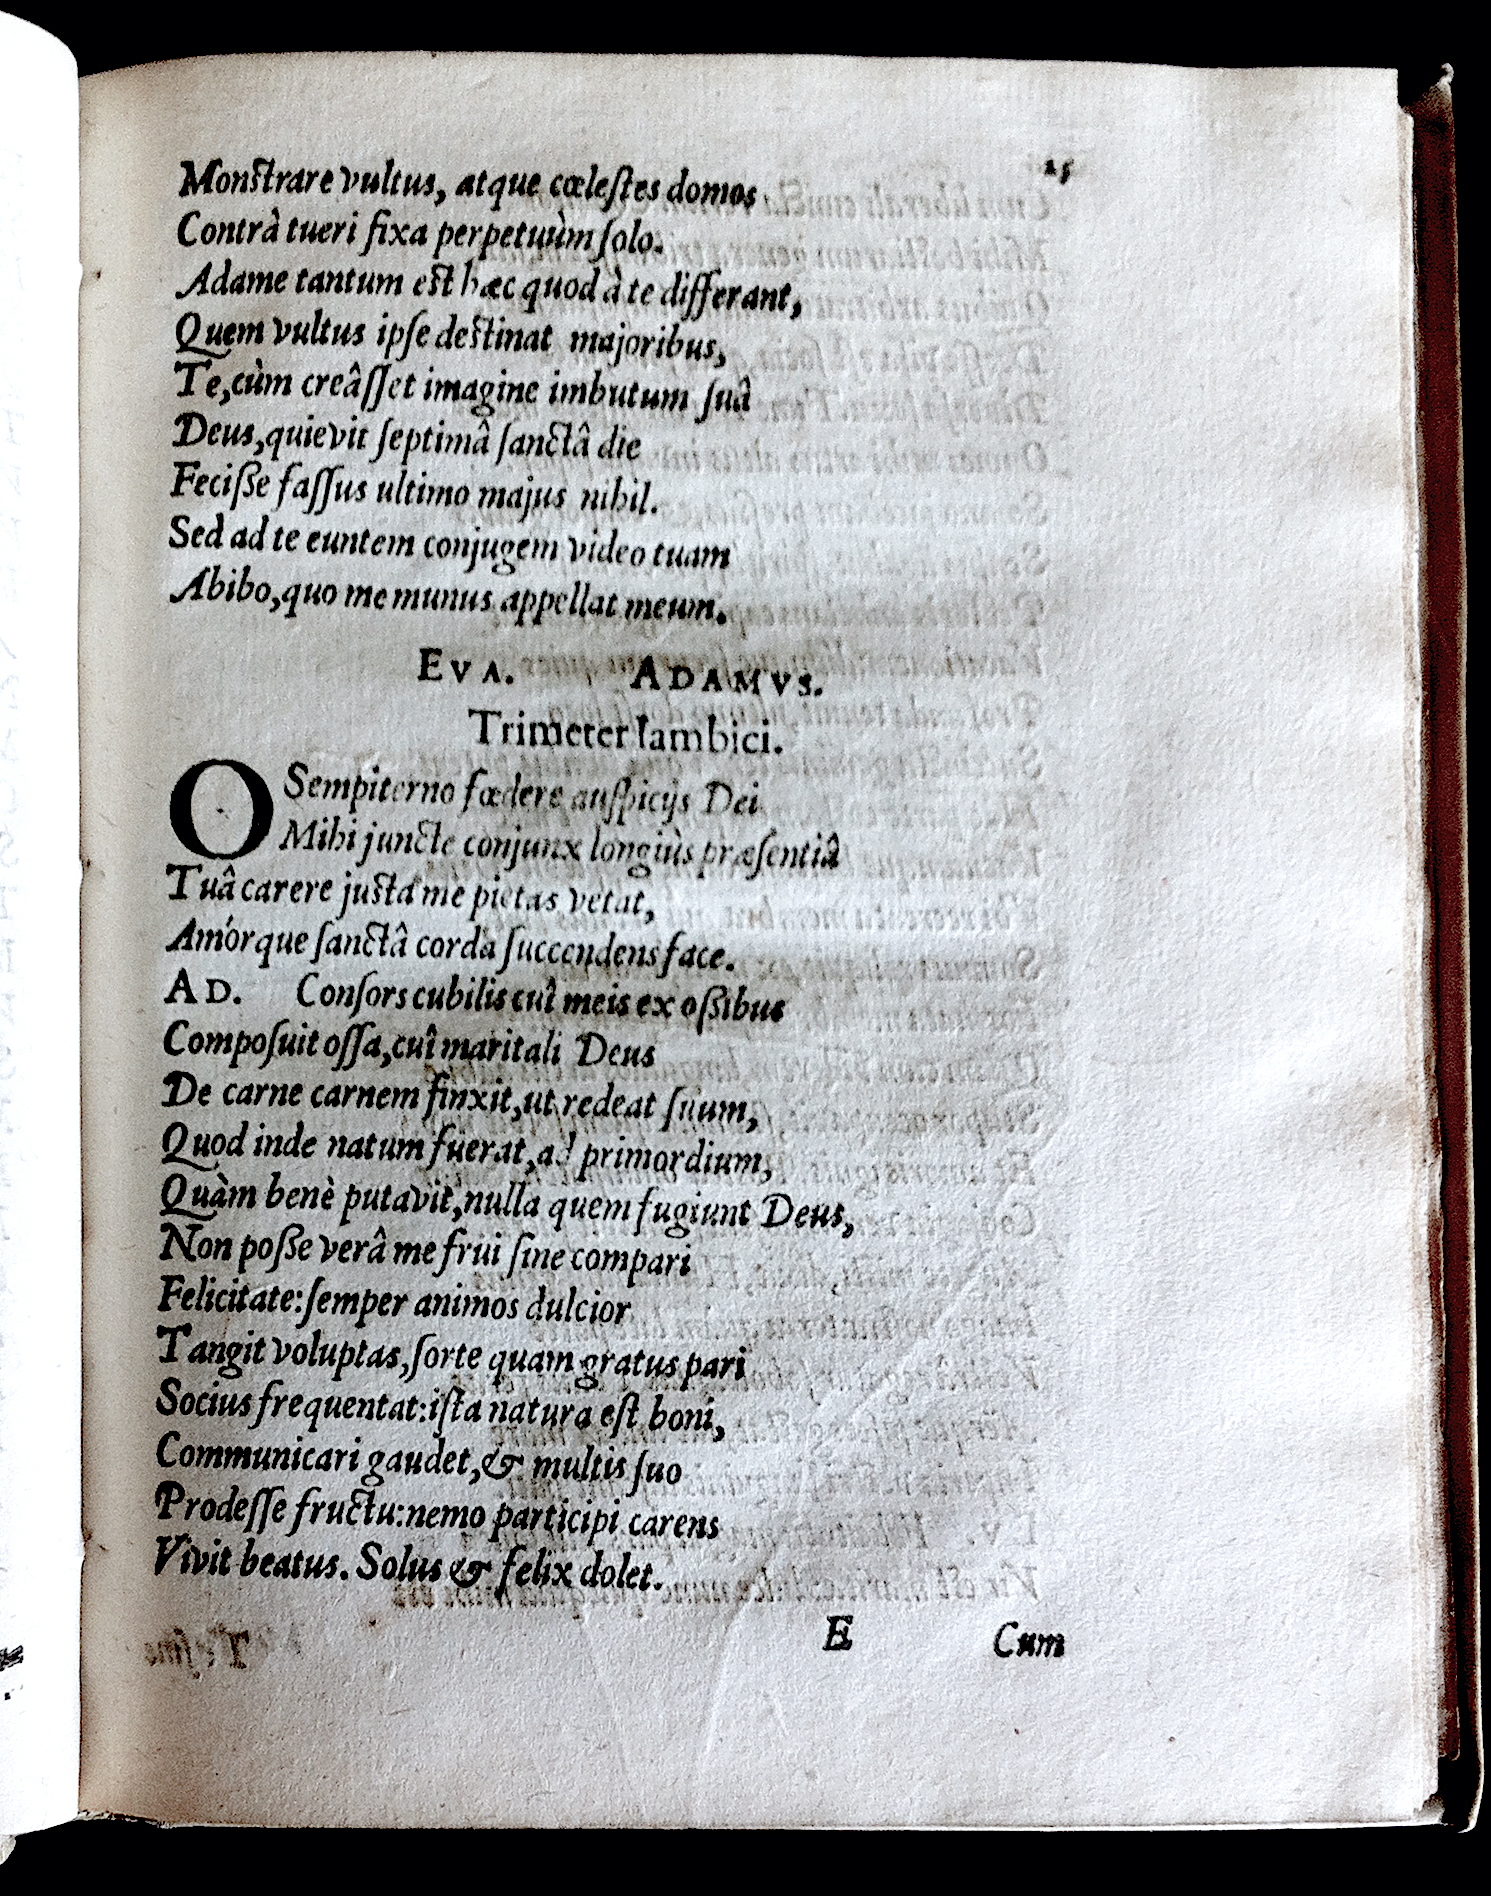 25
Monstrare vultus, atque cœleſtes domos
Contrà tueri fixa perpetuùm ſolo.
Adame tantum est hæc quod à te differant,
Quem vultus ipſe destinat majoribus,
Te, cùm creâſſet imagine imbutum ſuâ
Deus, quievit ſeptimâ ſanctâ die
Feciſſe faſſus ultimo majus nihil.
Sed ad te euntem conjugem video tuam
Abibo, quo me munus appellat meum.
EVA. ADAMVS.
Trimeter Iambici.
O Sempiterno fœdere auſpicijs Dei
Mihi juncte conjunx longiùs præſentiâ
Tuâ carere justa me pietas vetat,
Amórque ſanctâ corda ſuccendens face.
AD. Conſors cubilis cuî meis ex oſſibus
Compoſuit oſſa, cuî maritali Deus
De carne carnem finxit, ut redeat ſuum,
Quod inde natum fuerat, ad primordium,
Quàm benè putavit, nulla quem fugiunt Deus,
Non poſſe verâ me frui ſine compari
Felicitate: ſemper animos dulcior
Tangit voluptas, ſorte quam gratus pari
Socius frequentat: iſta natura eſt boni,
Communicari gaudet, & multis ſuo
Prodeſſe fructu: nemo participi carens
Vivit beatus. Solus & felix dolet.
E Cum